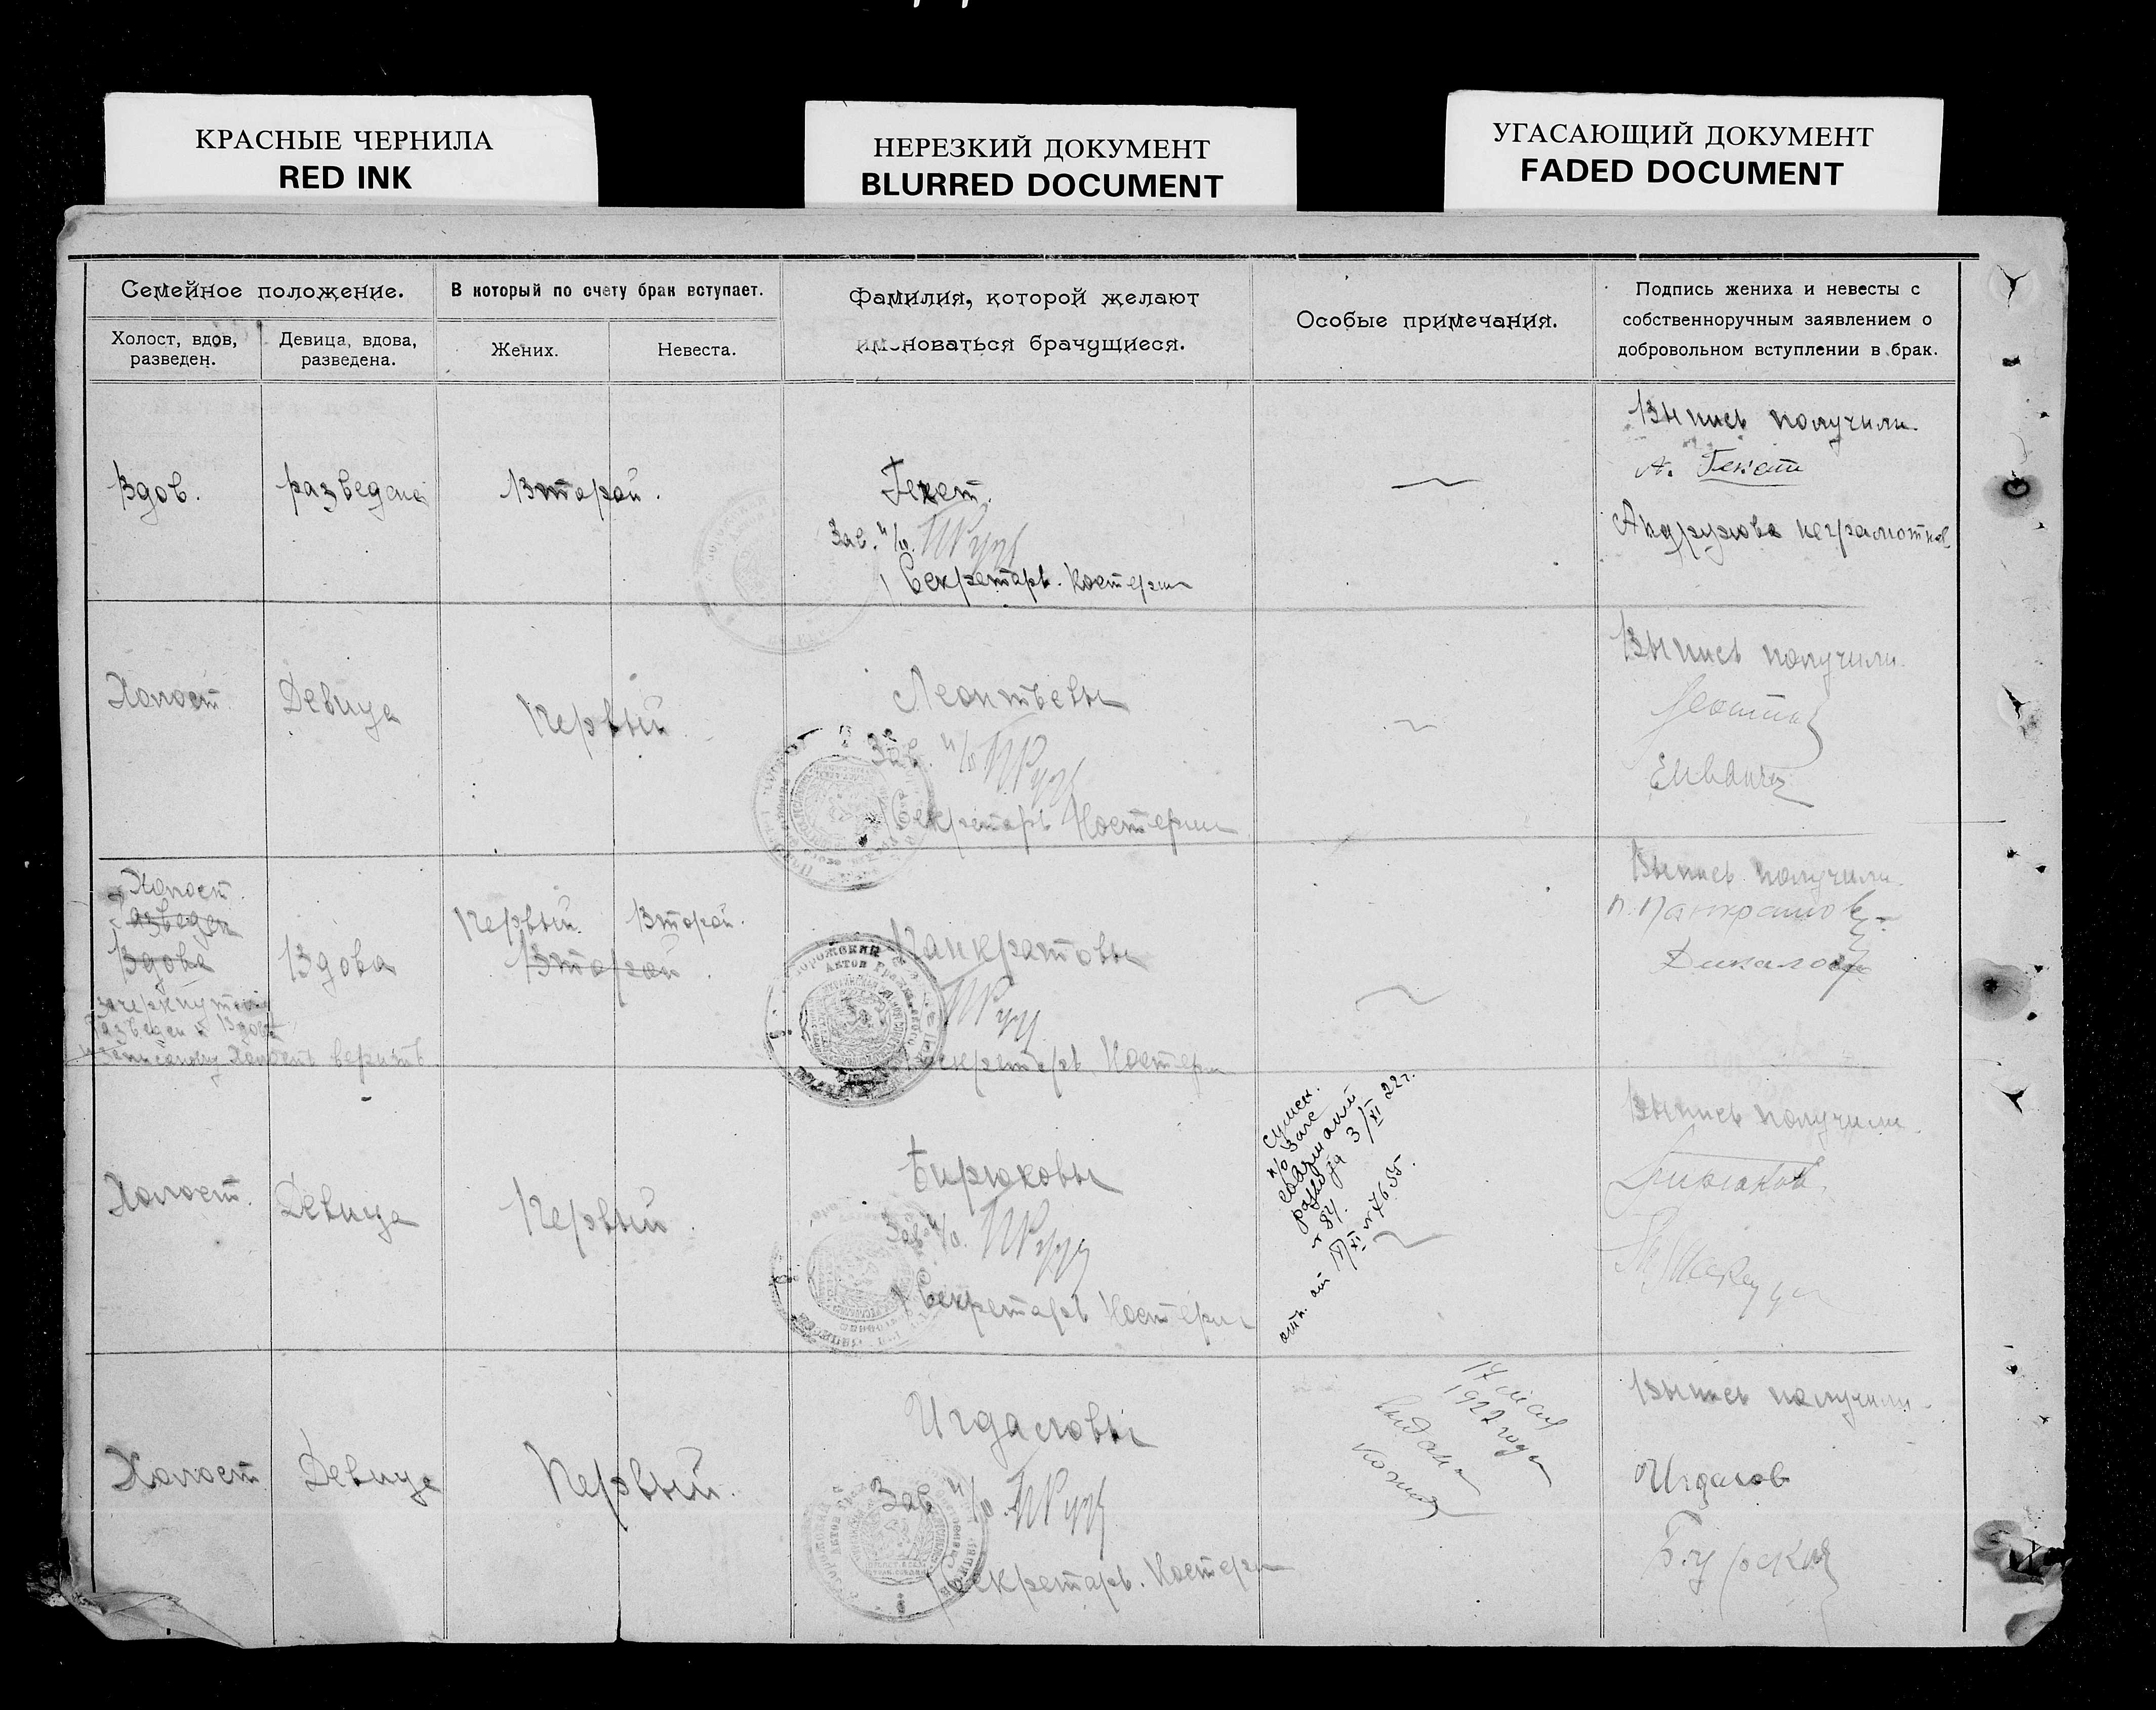 КРАСНЫЕ ЧЕРНИЛА
RED INK
НЕРЕЗКИЙ ДОКУМЕНТ
BLURRED DOCUMENT
УГАСАЮЩИЙ ДОКУМЕНТ
FADED DOCUMENT
Семейное положение.
Холост, вдов,
разведен.
Девица, вдова,
разведена.
В который по счету брак вступает.
Жених.
Невеста.
Фамилия, которой желают
именоваться брачущиеся.
Особые примечания.
Подпись жениха и невесты с
собственноручным заявлением о
добровольном вступлении в брак.
Вдов.
разведена
Второй.
Гекст.
Зав. п/о.
Секретарь. Костерин
Выпись получили.
А.
неграмотная
Холост.
Девица
Первый.
Леонтьевы
Зав. п/о
Секретарь Костерин
Выпись получили.
Холост.
Разведен
Вдова
Вдова
Первый.
Второй.
Второй
зачеркнутому
Разведен и Вдова
Холост верить.
Панкратовы
Секретарь. Костерин
Выпись получили.
П. Панкратов
Холост.
Девица
Первый.
Бирюковы
Зав п/о.
Секретарь Костерин
развода 3/XI 22 г.
№ 84.
отн. от
№ 7635.
Выпись получили.
Бирюков
Холост
Девица
Первый.
Игдаловы
Зав п/о.
Секретарь. Костерин
1922 года
выдана
копия
Выпись получили.
Игдалов